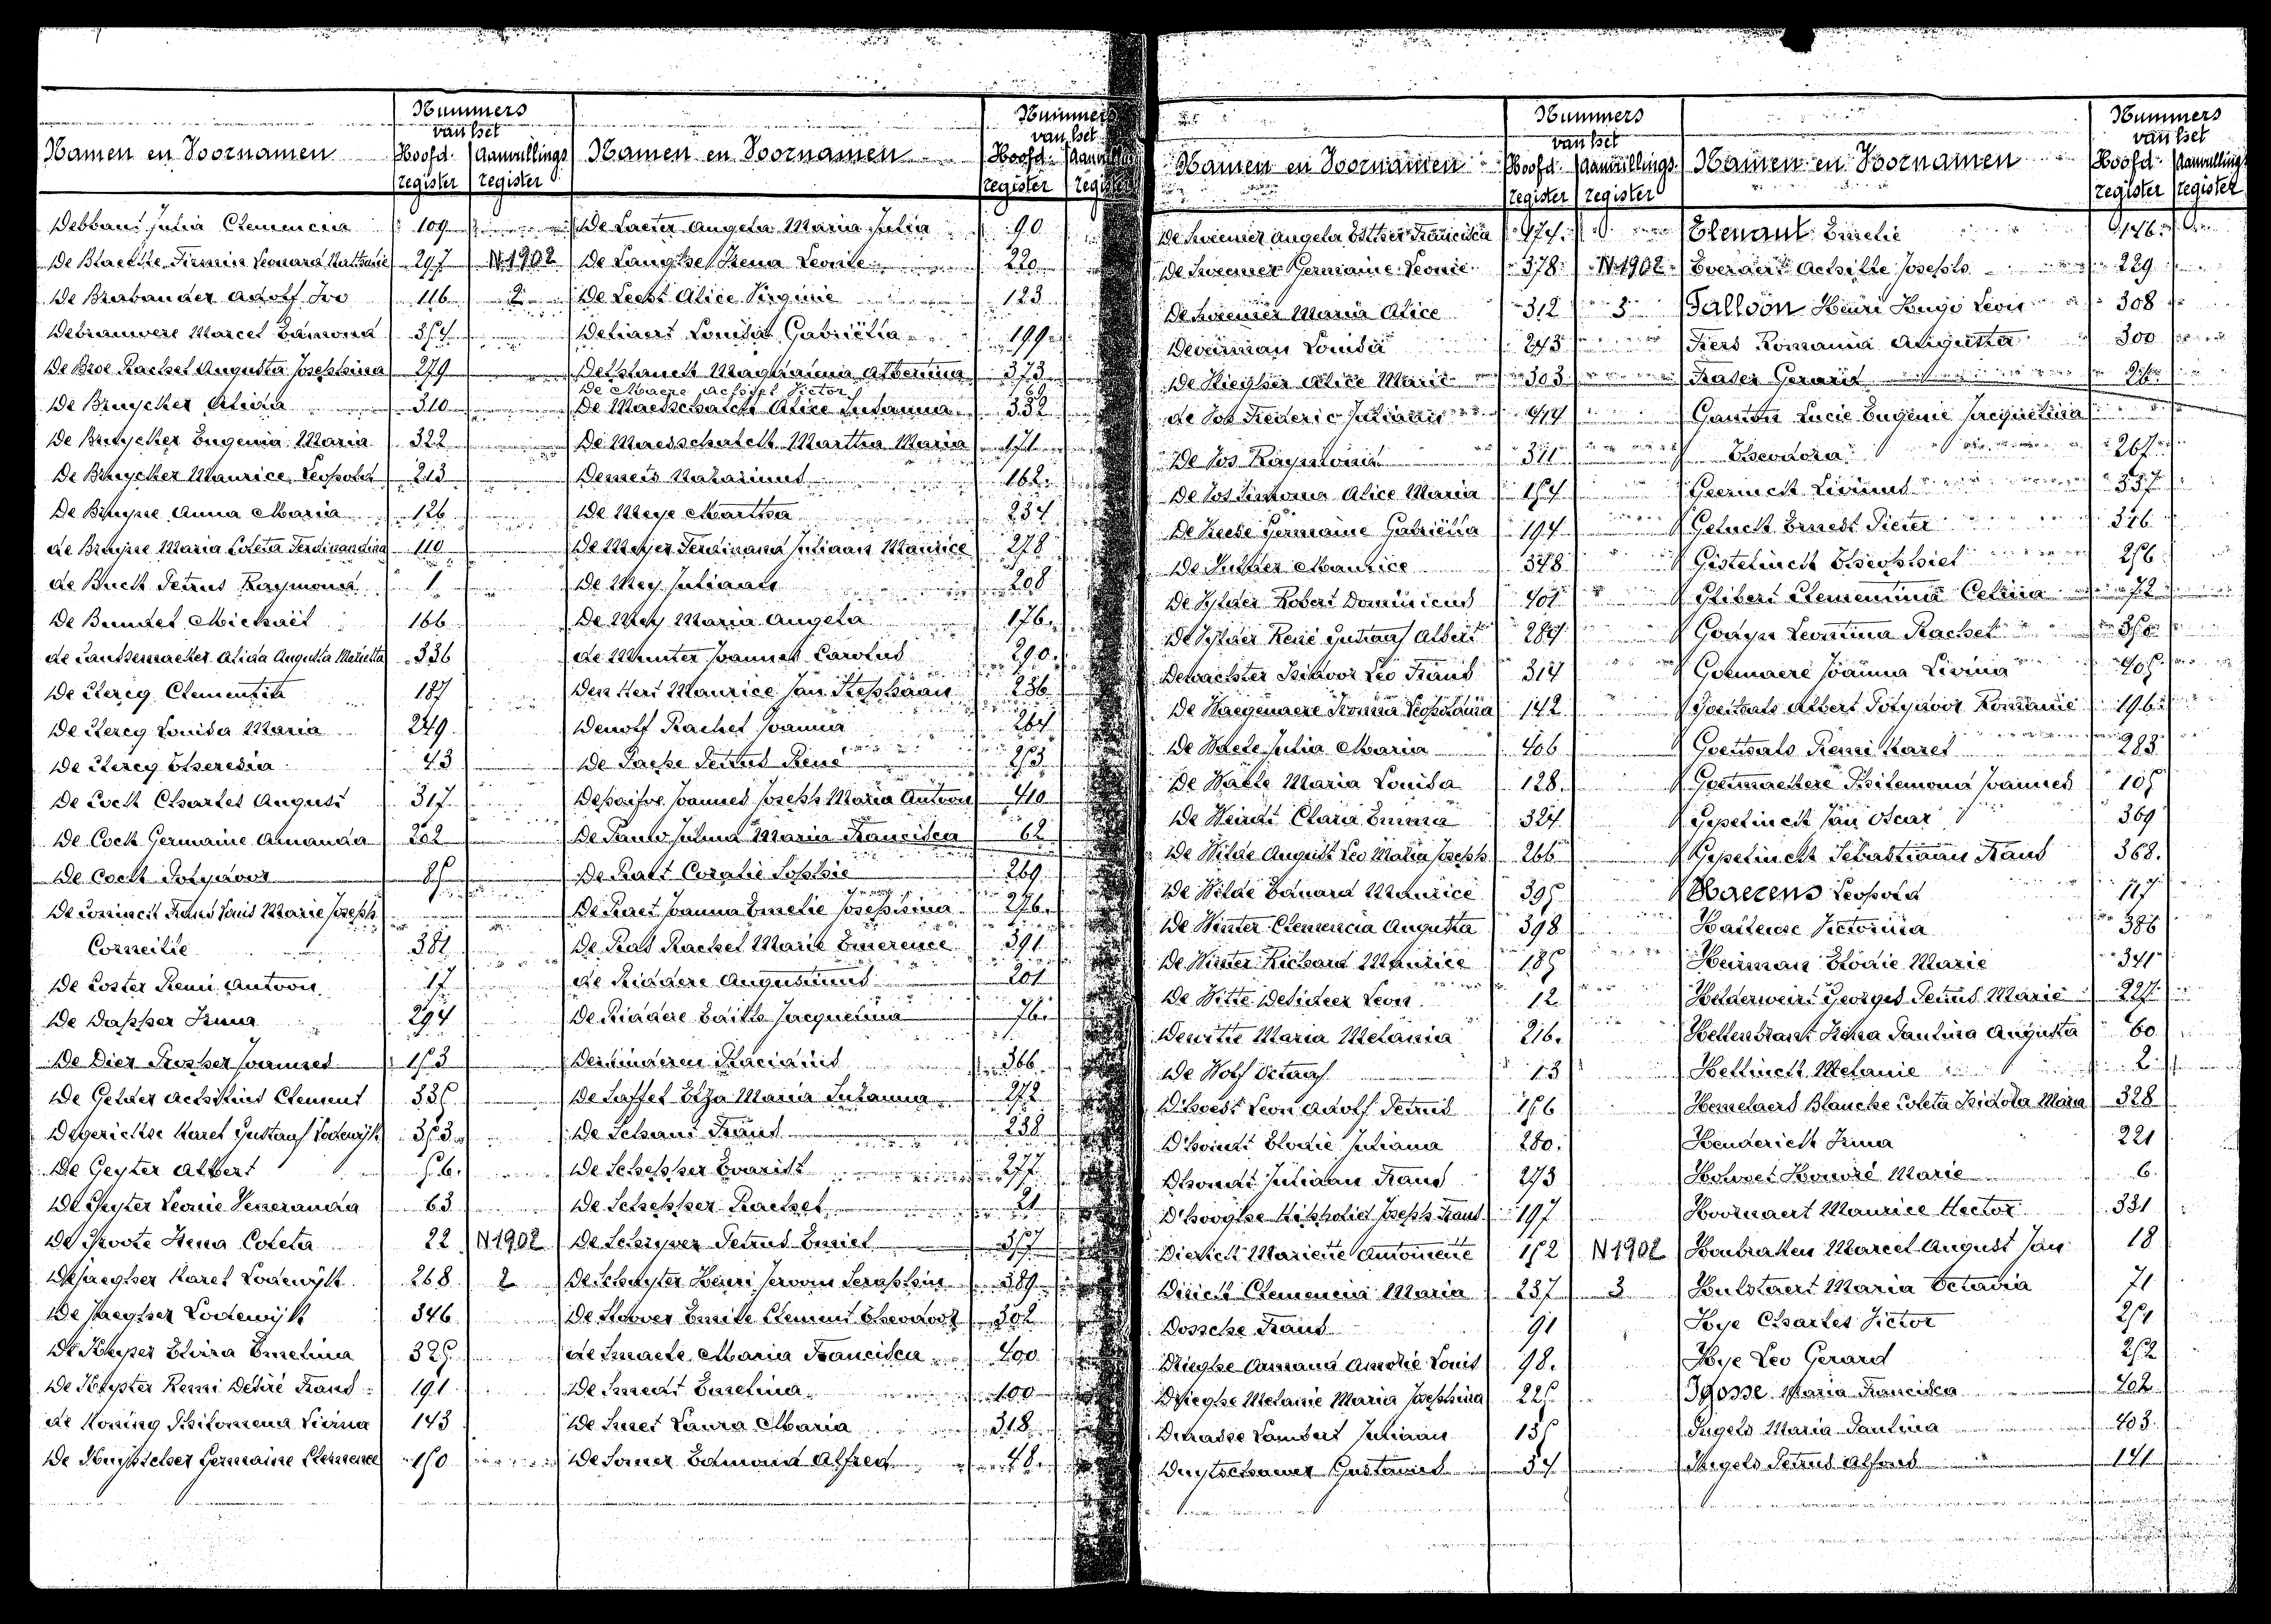 Nummers
van het
Namen en Voornamen Hoofd- Aanvullings
register register
Debbaut Julia Clemencia 109
De Blaeske Firmin Leonard 297 N 1902
De Brabander Adolf Ivo 116 2
Debrauwere Marcel Edmond 354
De Broe Rachel Augusta Josephina 279
De Bruycker Alida 310
De Bruycker Eugenia Maria 322
De Bruycker Maurice Leopold 213
De Bruyne Anna Maria 126
de Bruyne Maria Coleta Ferdinandina 110
de Buck Petrus Raymond 1
De Bundel Michaël 166
de Causemaeker Alida Augusta Marietta 336
De Clercq Clementia 187
De Clercq Louisa Maria 249
De Clercq Theresia 43
De Cock Charles August 317
De Cock Germaine Amanda 202
De Cock Polydoor 85
De Coninck Frans Louis Marie Joseph
Corneille 381
De Coster Remi Antoon 17
De Dapper Irma 294
De Dier Prosper Joannes 153
De Gelder Achilius Clement 335
Degerickse Karel Gustaaf Lodewijk 353
De Geyter Albert 56
De Geyter Leonie Veneranda 63
De Groote Irena Coleta 22 N 1902
Dejaegher Karel Lodewijk 268 2
De Jaegher Lodewijk 346
De Keyser Elvira Emelina 325
De Keyster Remi Desiré Frans 191
de Koning Philomena Livina 143
De Kuysscher Germaine Clemence 150
Nummers
van het
Namen en Voornamen Hoofd-
register
De Laeter Angela Maria Julia 90
De Langhe Irena Leonie 220
De Leest Alice Virginie 123
Deliaert Louisa Gabriëlla 199
Delplanck Magdalena Albertina 373
De Maere Achiel Victor
De Maesschalck Alice Susanna 332
De Maesschalck Martha Maria 171
Demeis Natarinus 162
De Meye Martha 234
De Meyer Ferdinand Juliaan Maurice 278
De Mey Juliaan 208
De Mey Maria Angela 176
de Munter Joannes Carolus 290
Den Hert Maurice Jan Stephaan 236
Denolf Rachel Joanna 264
De Paepe Petrus René 253
Depaifve Joannes Joseph Maria Antoon 410
De Pauw Juliana Maria Francisca 62
De Raet Coralie Sophie 269
De Raet Joanna Emelie Josephina 276
De Ras Rachel Marie Emerence 391
de Riddere Augustinus 201
De Riddere Edith Jacquelina 76
Derminderen Placidus 366
De Saffel Elza Maria Susanna 272
De Schant Frans 238
De Schepper Evarist 277
De Schepper Rachel 21
De Schryver Petrus Emiel 357
De Schuyter Henri Jeroom Seraphin 389
De Slover Emile Clement Theodoor 302
de Smaele Maria Francisca 400
De Smedt Emelina 100
De Smet Laura Maria 318
De Somer Edmond Alfred 48
Nummers
van het
Namen en Voornamen Hoofd- Aanvullings
register register
De Sweemer Angela Esther Francisca 474
De Sweemer Germaine Leonie 378 N 1902
De Sweemer Maria Alice 312 3
Deveirman Louisa 243
De Vlieghe Alice Marie 303
de Vos Frederic Juliaan
De Vos Raymond 371
De Vos Simona Alice Maria 154
De Vreese Germaine Gabriëlla 194
De Vulder Maurice 348
De Vylder Robert Dominicus 401
De Vylder René Gustaaf Albert 284
Dewachter Isidoor Leo Frans 314
De Waegenaere Irma Leopoldina 142
De Waele Julia Maria 406
De Waele Maria Louisa 128
De Weirdt Clara Emma 324
De Wilde August Leo Maria Joseph 266
De Wilde Eduard Maurice 395
De Winter Clemencia Augusta 398
De Winter Richard Maurice 185
De Witte Desideer Leon 12
Dewitte Maria Melania 216
De Wolf Octaaf 13
D'hoest Leon Adolf Petrus 156
D'hondt Elodie Juliana 280
Dhondt Juliaan Frans 273
D'hooghe Hippoliet Joseph Frans 197
Dierick Mariette Antoinette 152 N 1902
Dirick Clemencia Maria 237 3
Dossche Frans 91
Drieghe Armand Amedée Louis 98
Drieghe Melanie Maria Josephina 225
Dunasse Lambert Juliaan 135
Duytschaever Gustavus 34
Nummers
van het
Namen en Voornamen Hoofd- Aanvullings
register register
Elenaut Emelie 146
Everaert Achille Joseph 229
Falloon Henri Hugo Leon 308
Fiers Romania Augusta 300
Frater Gerard
Ganton Lucie Eugenie Jacquelina
Theodora 267
Geerinck Livinus 337
Geluck Ernest Pieter 326
Gistelinck Theophiel 256
Glibert Clementina Celina 72
Godyn Leontina Rachel 350
Goemaere Joanna Livina 405
Goethals Albert Polydoor Romanie 196
Goethals Remi Karel 283
Goetmaekere Philemond Joannes 105
Gyselinck Jan Oscar 369
Gyselinck Sebastiaan Frans 368
Haezens Leopold 117
Hallense Victorina 386
Heiman Elodie Marie 341
Helderweirt Georges Petrus Marie 227
Hellenbrant Irena Paulina Augusta 60
Hellinck Melanie 2
Hemelaers Blanche Coleta Isidora Maria 328
Henderick Irma 221
Holvoet Honoré Marie 6
Hoornaert Maurice Hector 331
Houbraken Marcel August Jan 18
Hulstaert Maria Octavia 71
Hye Charles Victor 251
Hye Leo Gerard 252
Ghosse Maria Francisca 402
Ingels Maria Paulina 403
Ingels Petrus Alfons 141